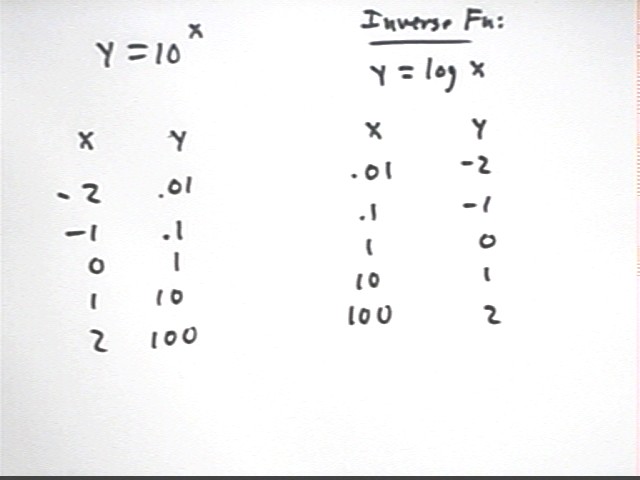 y = 10^x
x y
-2 .01
-1 .1
0 1
1 10
2 100
Inverse Fn:
y = log x
x y
.01 -2
.1 -1
1 0
10 1
100 2